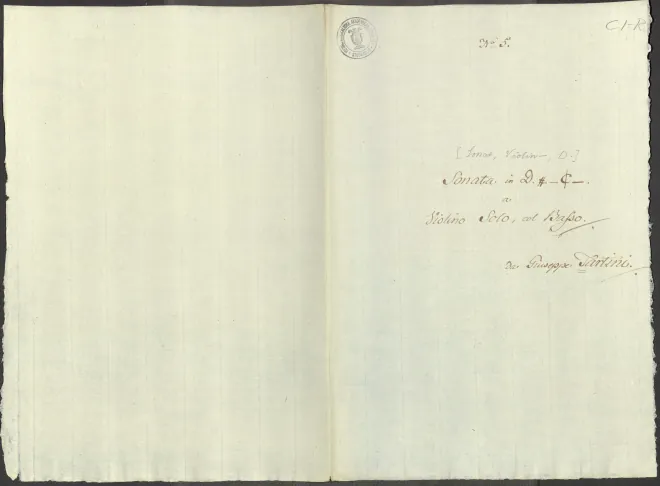 C-I-R
Nº 5.
Violino, D.]
Sonata in D. # — C —.
a
Violino Solo, col Basso.
Da Giuseppe Tartini.